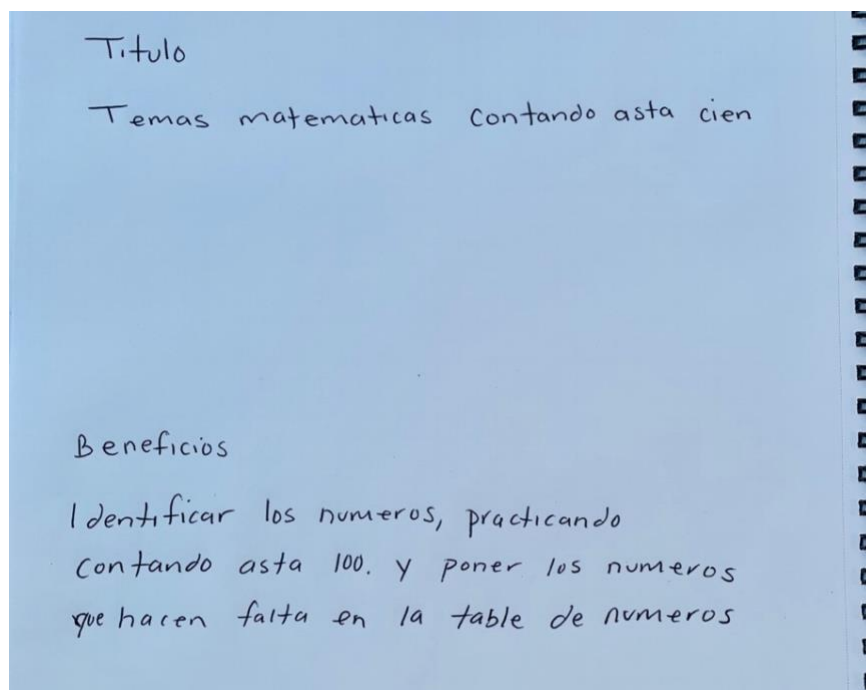 Titulo
Temas matematicas contando asta cien
Beneficios
Identificar los numeros, practicando
contando asta 100. y poner los numeros
que hacen falta en la table de numeros